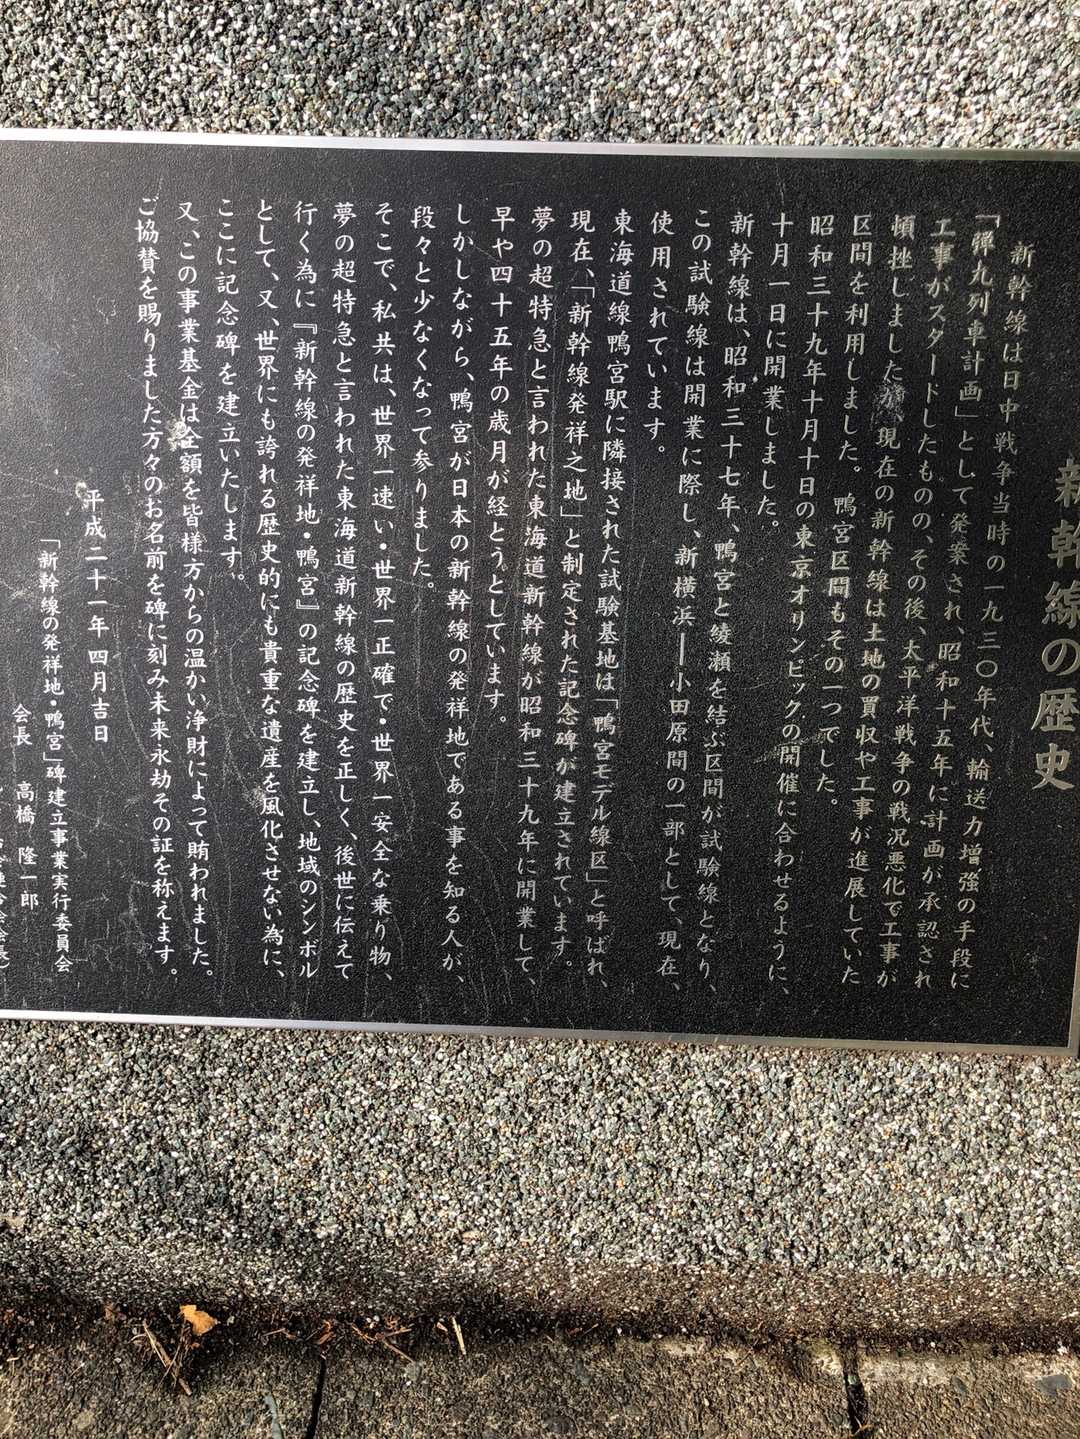 新幹線の歴史
新幹線は日中戦争当時の一九三〇年代、輸送力増強の手段に
「弾丸列車計画」として発案され、昭和十五年に計画が承認され
工事がスタートしたものの、その後、太平洋戦争の戦況悪化で工事が
頓挫しましたが、現在の新幹線は土地の買収や工事が進展していた
区間を利用しました。 鴨宮区間もその一つでした。
昭和三十九年十月十日の東京オリンピックの開催に合わせるように、
十月一日に開業しました。
新幹線は、昭和三十七年、鴨宮と綾瀬を結ぶ区間が試験線となり、
この試験線は開業に際し、新横浜―小田原間の一部として、現在、
使用されています。
東海道線鴨宮駅に隣接された試験基地は「鴨宮モデル線区」と呼ばれ、
現在、「新幹線発祥之地」と制定された記念碑が建立されています。
夢の超特急と言われた東海道新幹線が昭和三十九年に開業して、
早や四十五年の歳月が経とうとしています。
しかしながら、鴨宮が日本の新幹線の発祥地である事を知る人が、
段々と少なくなって参りました。
そこで、私共は、世界一速い・世界一正確で・世界一安全な乗り物、
夢の超特急と言われた東海道新幹線の歴史を正しく、後世に伝えて
行く為に『新幹線の発祥地・鴨宮』の記念碑を建立し、地域のシンボル
として、又、世界にも誇れる歴史的にも貴重な遺産を風化させない為に、
ここに記念碑を建立いたします。
又、この事業基金は全額を皆様方からの温かい浄財によって賄われました。
ご協賛を賜りました方々のお名前を碑に刻み未来永劫その証を称えます。
平成二十一年四月吉日
「新幹線の発祥地・鴨宮」碑建立事業実行委員会
会長 高橋 隆一郎